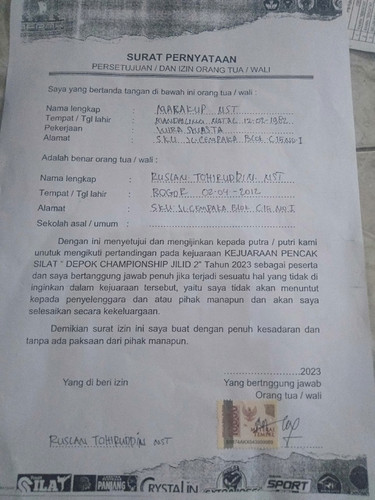 SURAT PERNYATAAN
PERSETUJUAN / DAN IZIN ORANG TUA / WALI
Saya yang bertanda tangan di bawah ini orang tua / wali
Nama lengkap : MARAKUP NST
Tempat / Tgl lahir : MANDAILING NATAL 12-02-1982
Pekerjaan : WIRA SWASTA
Alamat : S.K.U JL.CEMPAKA BLOK C.18 NO I
Adalah benar orang tua / wali :
Nama lengkap : RUSLAN TOHIRUDDIN NST
Tempat / Tgl lahir : BOGOR 02-04-2012
Alamat : S.K.U JL.CEMPAKA Blok C.18 NO I
Sekolah asal / umum :
Dengan ini menyetujui dan mengijinkan kepada putra / putri kami
uunutuk mengikuti pertandingan pada kejuaraan KEJUARAAN PENCAK
SILAT " DEPOK CHAMPIONSHIP JILID 2" Tahun 2023 sebagai peserta
dan saya bertanggung jawab penuh jika terjadi sesuatu hal yang tidak di
inginkan dalam kejuaraan tersebut, yaitu saya tidak akan menuntut
kepada penyelenggara dan atau pihak manapun dan akan saya
selesaikan secara kekeluargaan.
Demikian surat izin ini saya buat dengan penuh kesadaran dan
tanpa ada paksaan dari pihak manapun.
........................2023
Yang di beri izin
Yang bertnggung jawab
Orang tua / wali
10000
TEMPEL
RUSLAN TOHIRUDDIN NST
SILAT
PANJANG
CRYSTALIN
SPORT